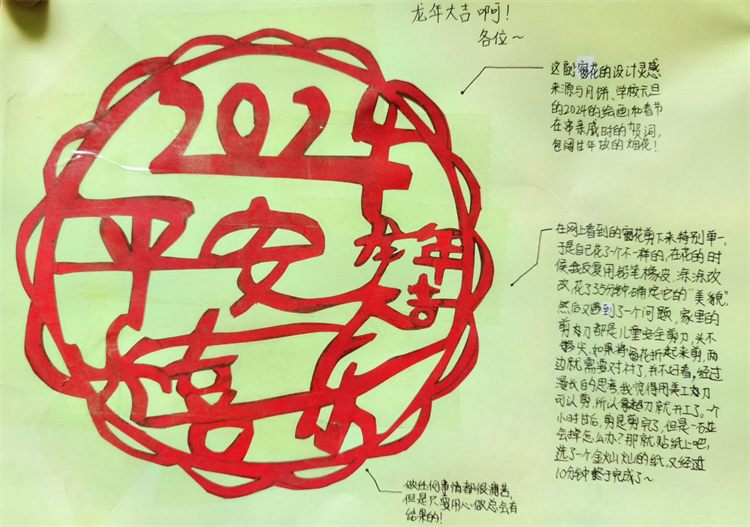 龙年大吉啊！
各位~
2024
平安
龙年
大吉
喜乐
这副窗花的设计灵感
来源与月饼、学校元旦
的2024的绘画和春节
在串亲戚时的贺词，
包阔过年放的烟花！
在网上看到的窗花剪下来特别单一，
于是自己花了个不一样的，在花的时
候我反复用铅笔橡皮涂涂改
改，花了35分钟确定它的“美貌”
然后又遇到了一个问题，家里的
剪刀都是儿童安全剪刀，头不
够尖，如果将窗花折起来剪，两
边就需要对衬了，并不好看，经过
漫长的思考，我觉得用美工刀
可以剪，所以拿起刀就开工了。一个
小时过后，剪是剪完了，但是一方并
会掉怎么办？那就贴纸上吧，
选了一个金灿灿的纸，又经过
10分钟终于完成了~
做任何事情都很痛苦，
但是只要用心做总会有
结果的！